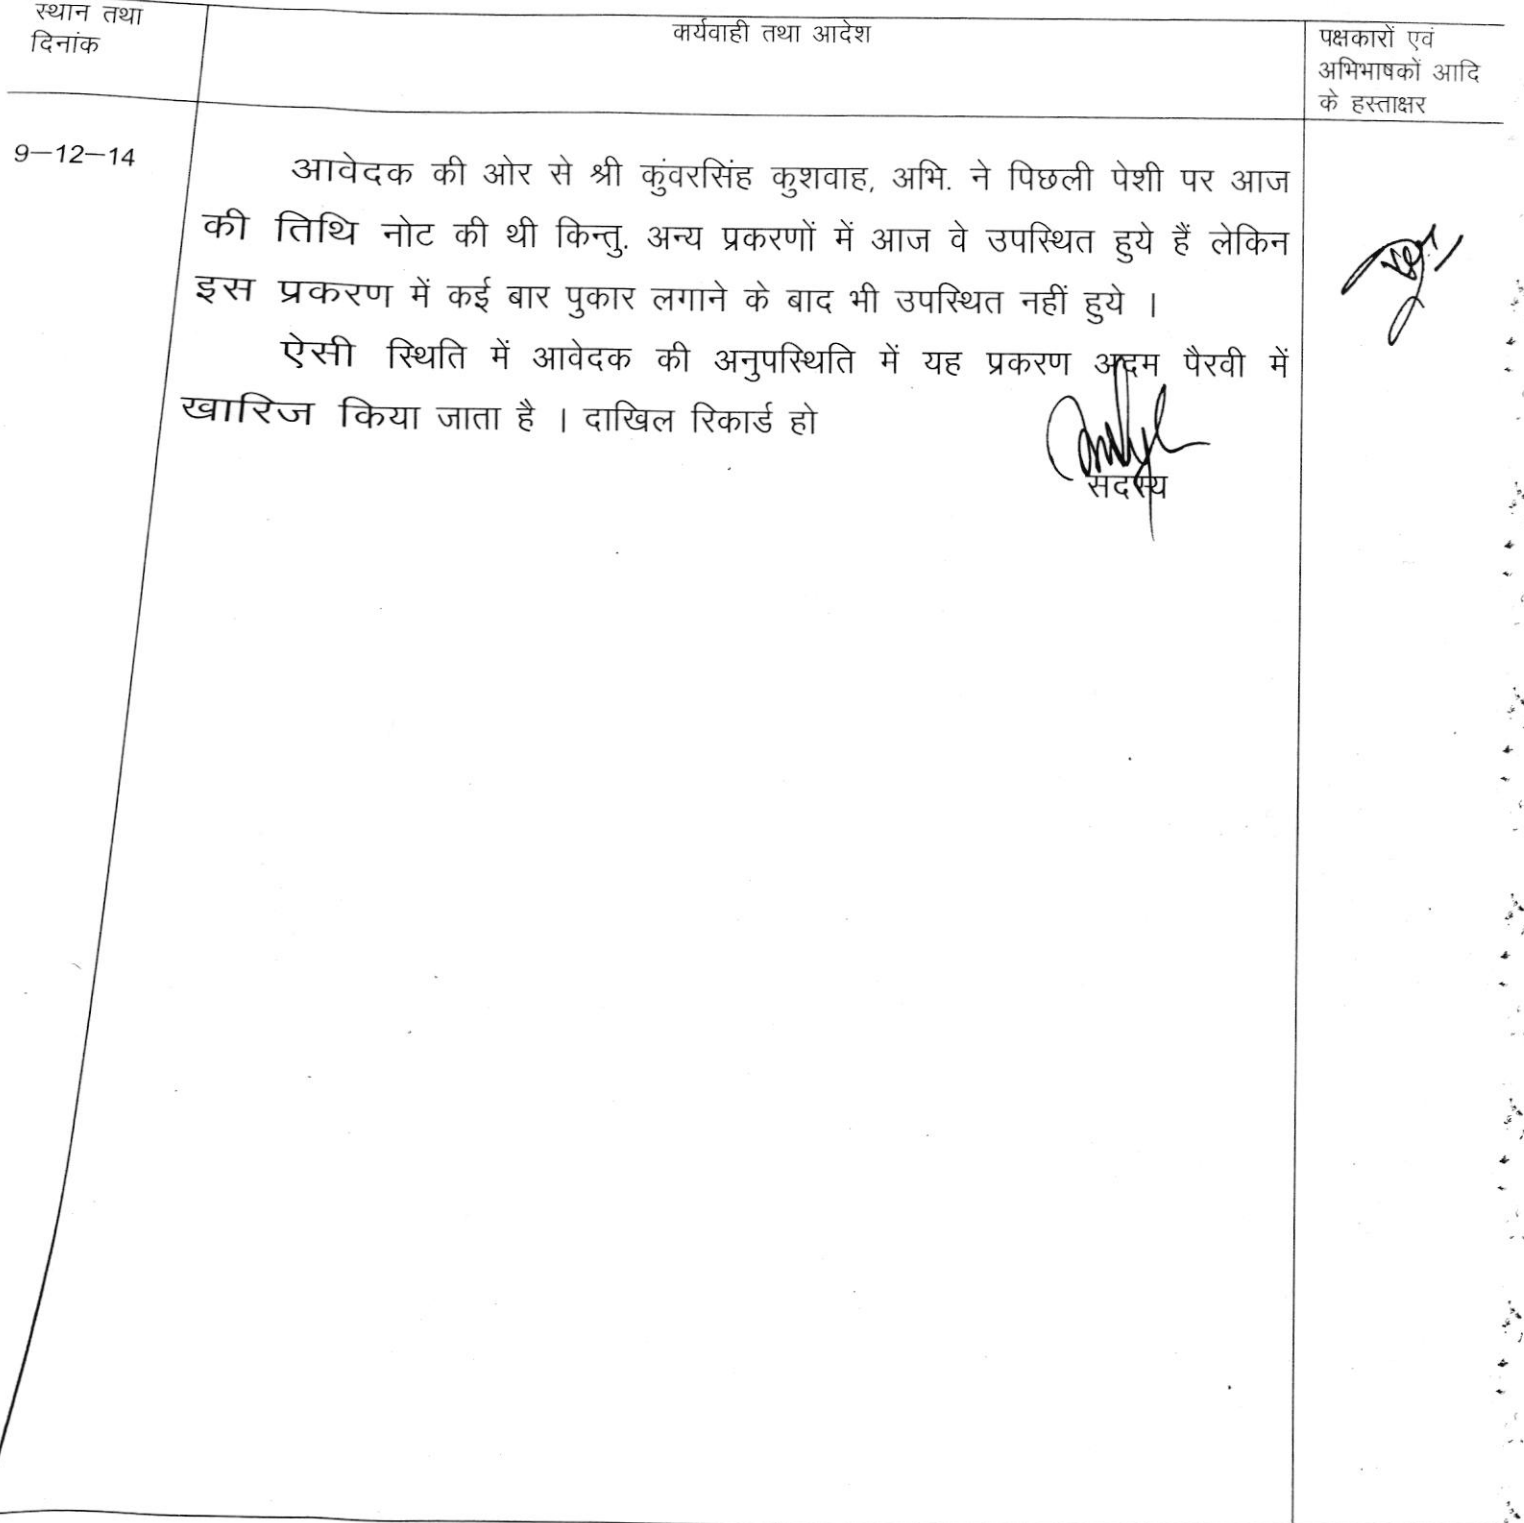 स्थान तथा
दिनांक
कार्यवाही तथा आदेश
पक्षकारों एवं
अभिभाषकों आदि
के हस्ताक्षर
9—12—14
आवेदक की ओर से श्री कुंवरसिंह कुशवाह, अभि. ने पिछली पेशी पर आज
की तिथि नोट की थी किन्तु. अन्य प्रकरणों में आज वे उपस्थित हुये हैं लेकिन
इस प्रकरण में कई बार पुकार लगाने के बाद भी उपस्थित नहीं हुये ।
ऐसी स्थिति में आवेदक की अनुपस्थिति में यह प्रकरण अदम पैरवी में
खारिज किया जाता है । दाखिल रिकार्ड हो
सदस्य